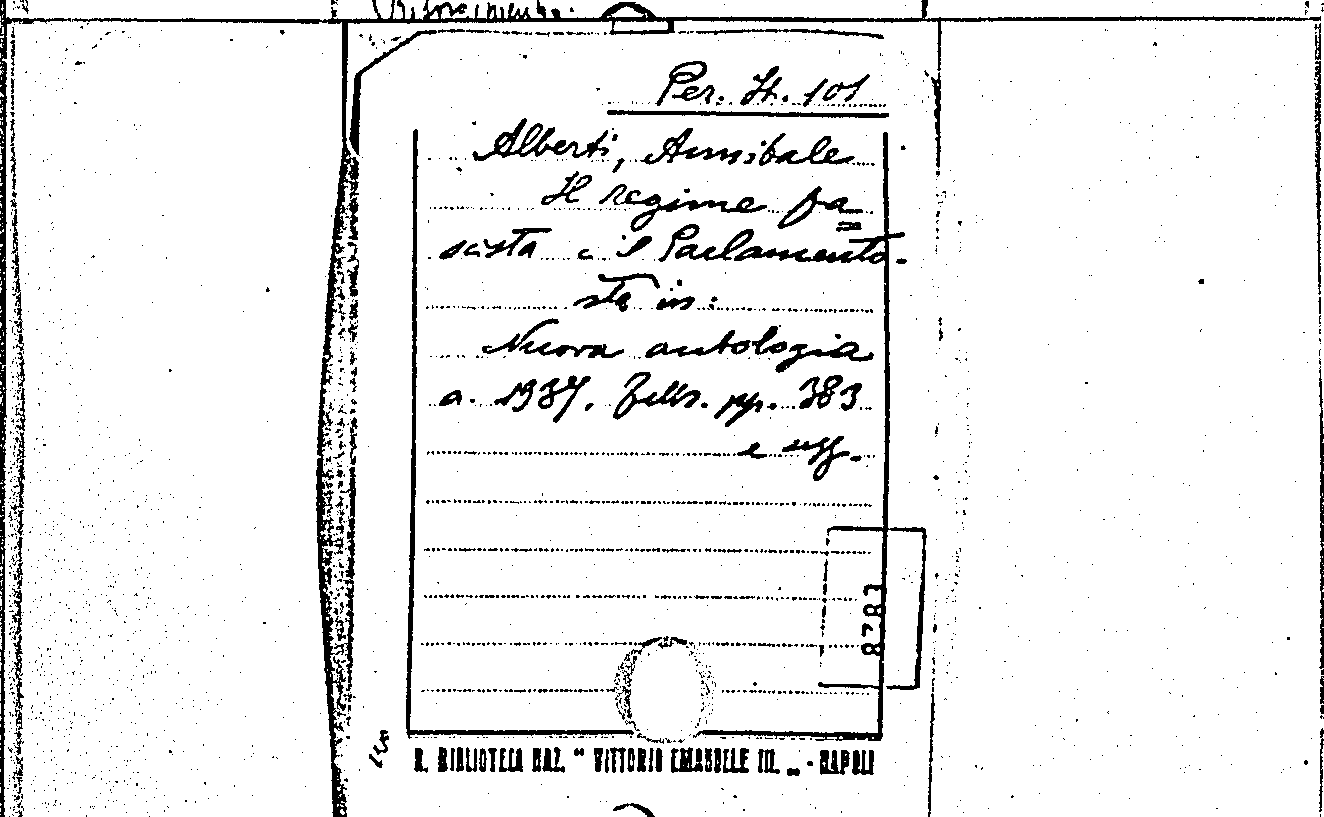 Per. It. 101
Alberti, Annibale
Il regime fa=
scista e il Parlamento.
sta in:
Nuova antologia
a. 1937. Febbr. pp. 383
e sgg.
8781
R. BIBLIOTECA NAZ. "VITTORIO EMANUELE III. „ - NAPOLI